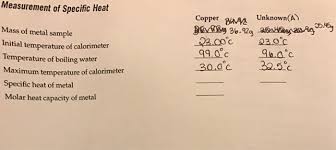 Measurement of Specific Heat
Copper Unknown (A)
Mass of metal sample 36.92g
Initial temperature of calorimeter 23.00°C 23.0°C
Temperature of boiling water 99.0°C 96.0°C
Maximum temperature of calorimeter 30.0°C 32.5°C
Specific heat of metal
Molar heat capacity of metal